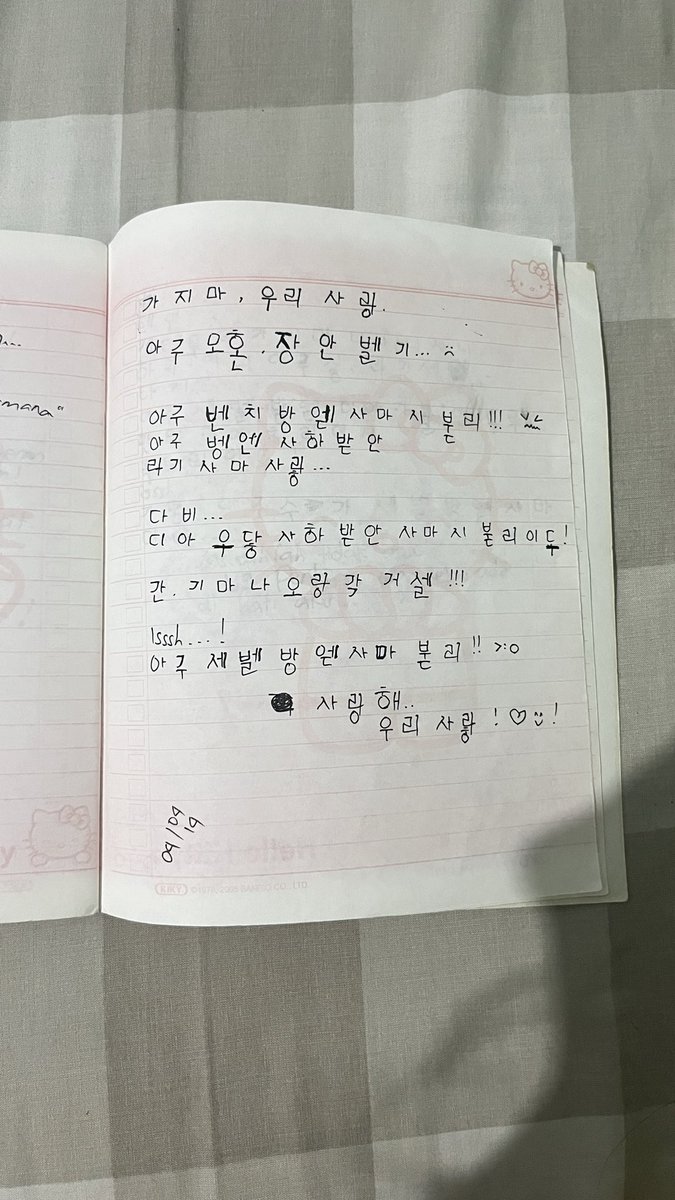 mana"
가 지 마 , 우 리 사 랑.
아 구 모 혼 . 장 안 벨 기...
아 구 벤 치 방 엩 사 마 시 붇 리!!!
아 구 벵 엔 사 하 받 안
라 기 사 마 사 랑...
다 비...
디 아 우 닿 사 하 받 안 사 마 시 불 리 이 두!
간. 기 마 나 오 랑 각 거 셀!!!
Isssh...!
아 구 제 벨 방 엔 사 마 붇 리!! >:o
사 랑 해..
우 리 사 랑 ! ♡ !
09/09
19
KIKY
CO., LTD